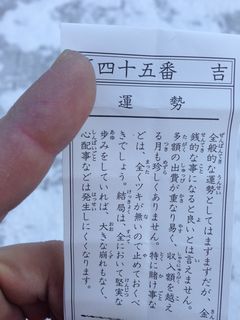 四十五番 吉
運勢
全般的な運勢としてはまずまずだが、金
銭的な事になると良いとは言えません。
多額の出費が重なり易く、収入額を越え
る月も珍しくありません。特に賭け事な
どは、全くツキが無いので止めておくべ
きでしょう。結局は、全において堅実な
歩みをしていれば、大きな崩れもなく、
心配事などは発生しにくくなります。